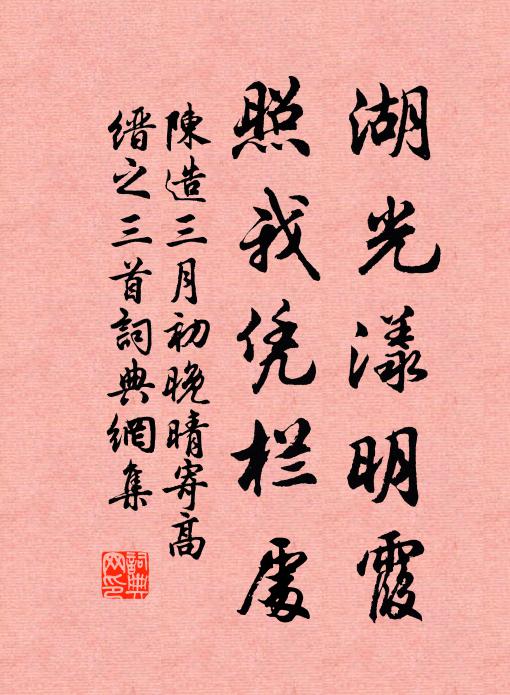 湖光漾明霞
照我凭栏處
陳造三月初晚晴寄高
缙之三首詞典網集
詞典
网印